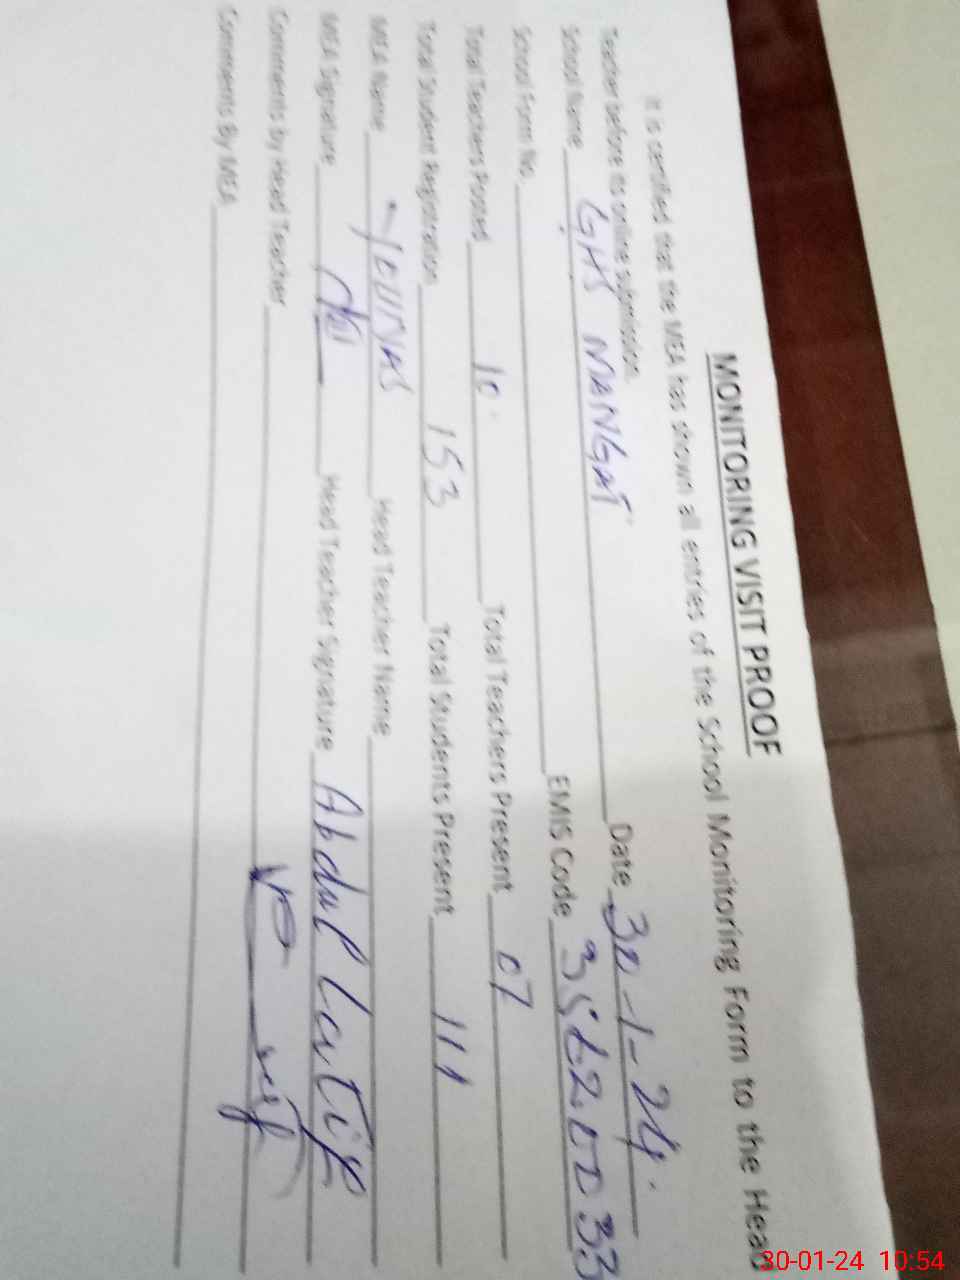 MONITORING VISIT PROOF
It is certified that the MEA has shown all entries of the School Monitoring Form to the Head
Teacher before its online submission.
School Name GHS MANGAT Date 30-1-24.
School Form No. EMIS Code
Total Teachers Posted 10 Total Teachers Present 07
Total Student Registration 153 Total Students Present 111
MEA Name YOUNAS Head Teacher Name
MEA Signature Head Teacher Signature Abdul Latif
Comments by Head Teacher
Comments By MEA
30-01-24 10:54